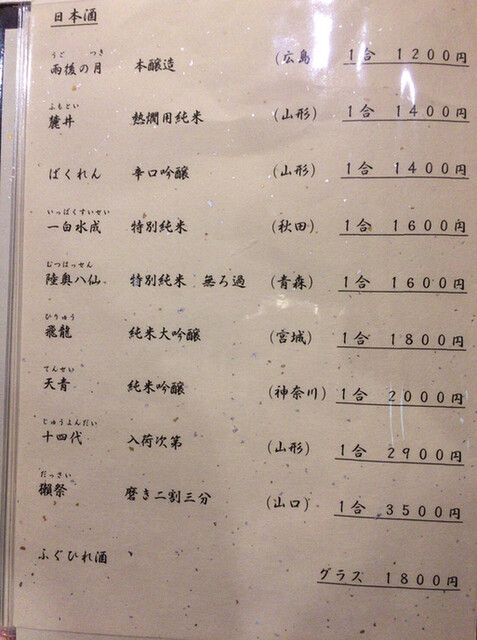 日本酒
うご つき
雨後の月 本醸造 (広島 1合 1200円
ふもとい
麓井 熱燗用純米 (山形) 1合 1400円
ばくれん 辛口吟醸 (山形) 1合 1400円
いっぱくすいせい
一白水成 特別純米 (秋田) 1合 1600円
むつはっせん
陸奥八仙 特別純米 無ろ過 (青森) 1合 1600円
ひりゅう
飛龍 純米大吟醸 (宮城) 1合 1800円
てんせい
天青 純米吟醸 (神奈川) 1合 2000円
じゅうよんだい
十四代 入荷次第 (山形) 1合 2900円
だっさい
獺祭 磨き二割三分 (山口) 1合 3500円
ふぐひれ酒 グラス 1800円